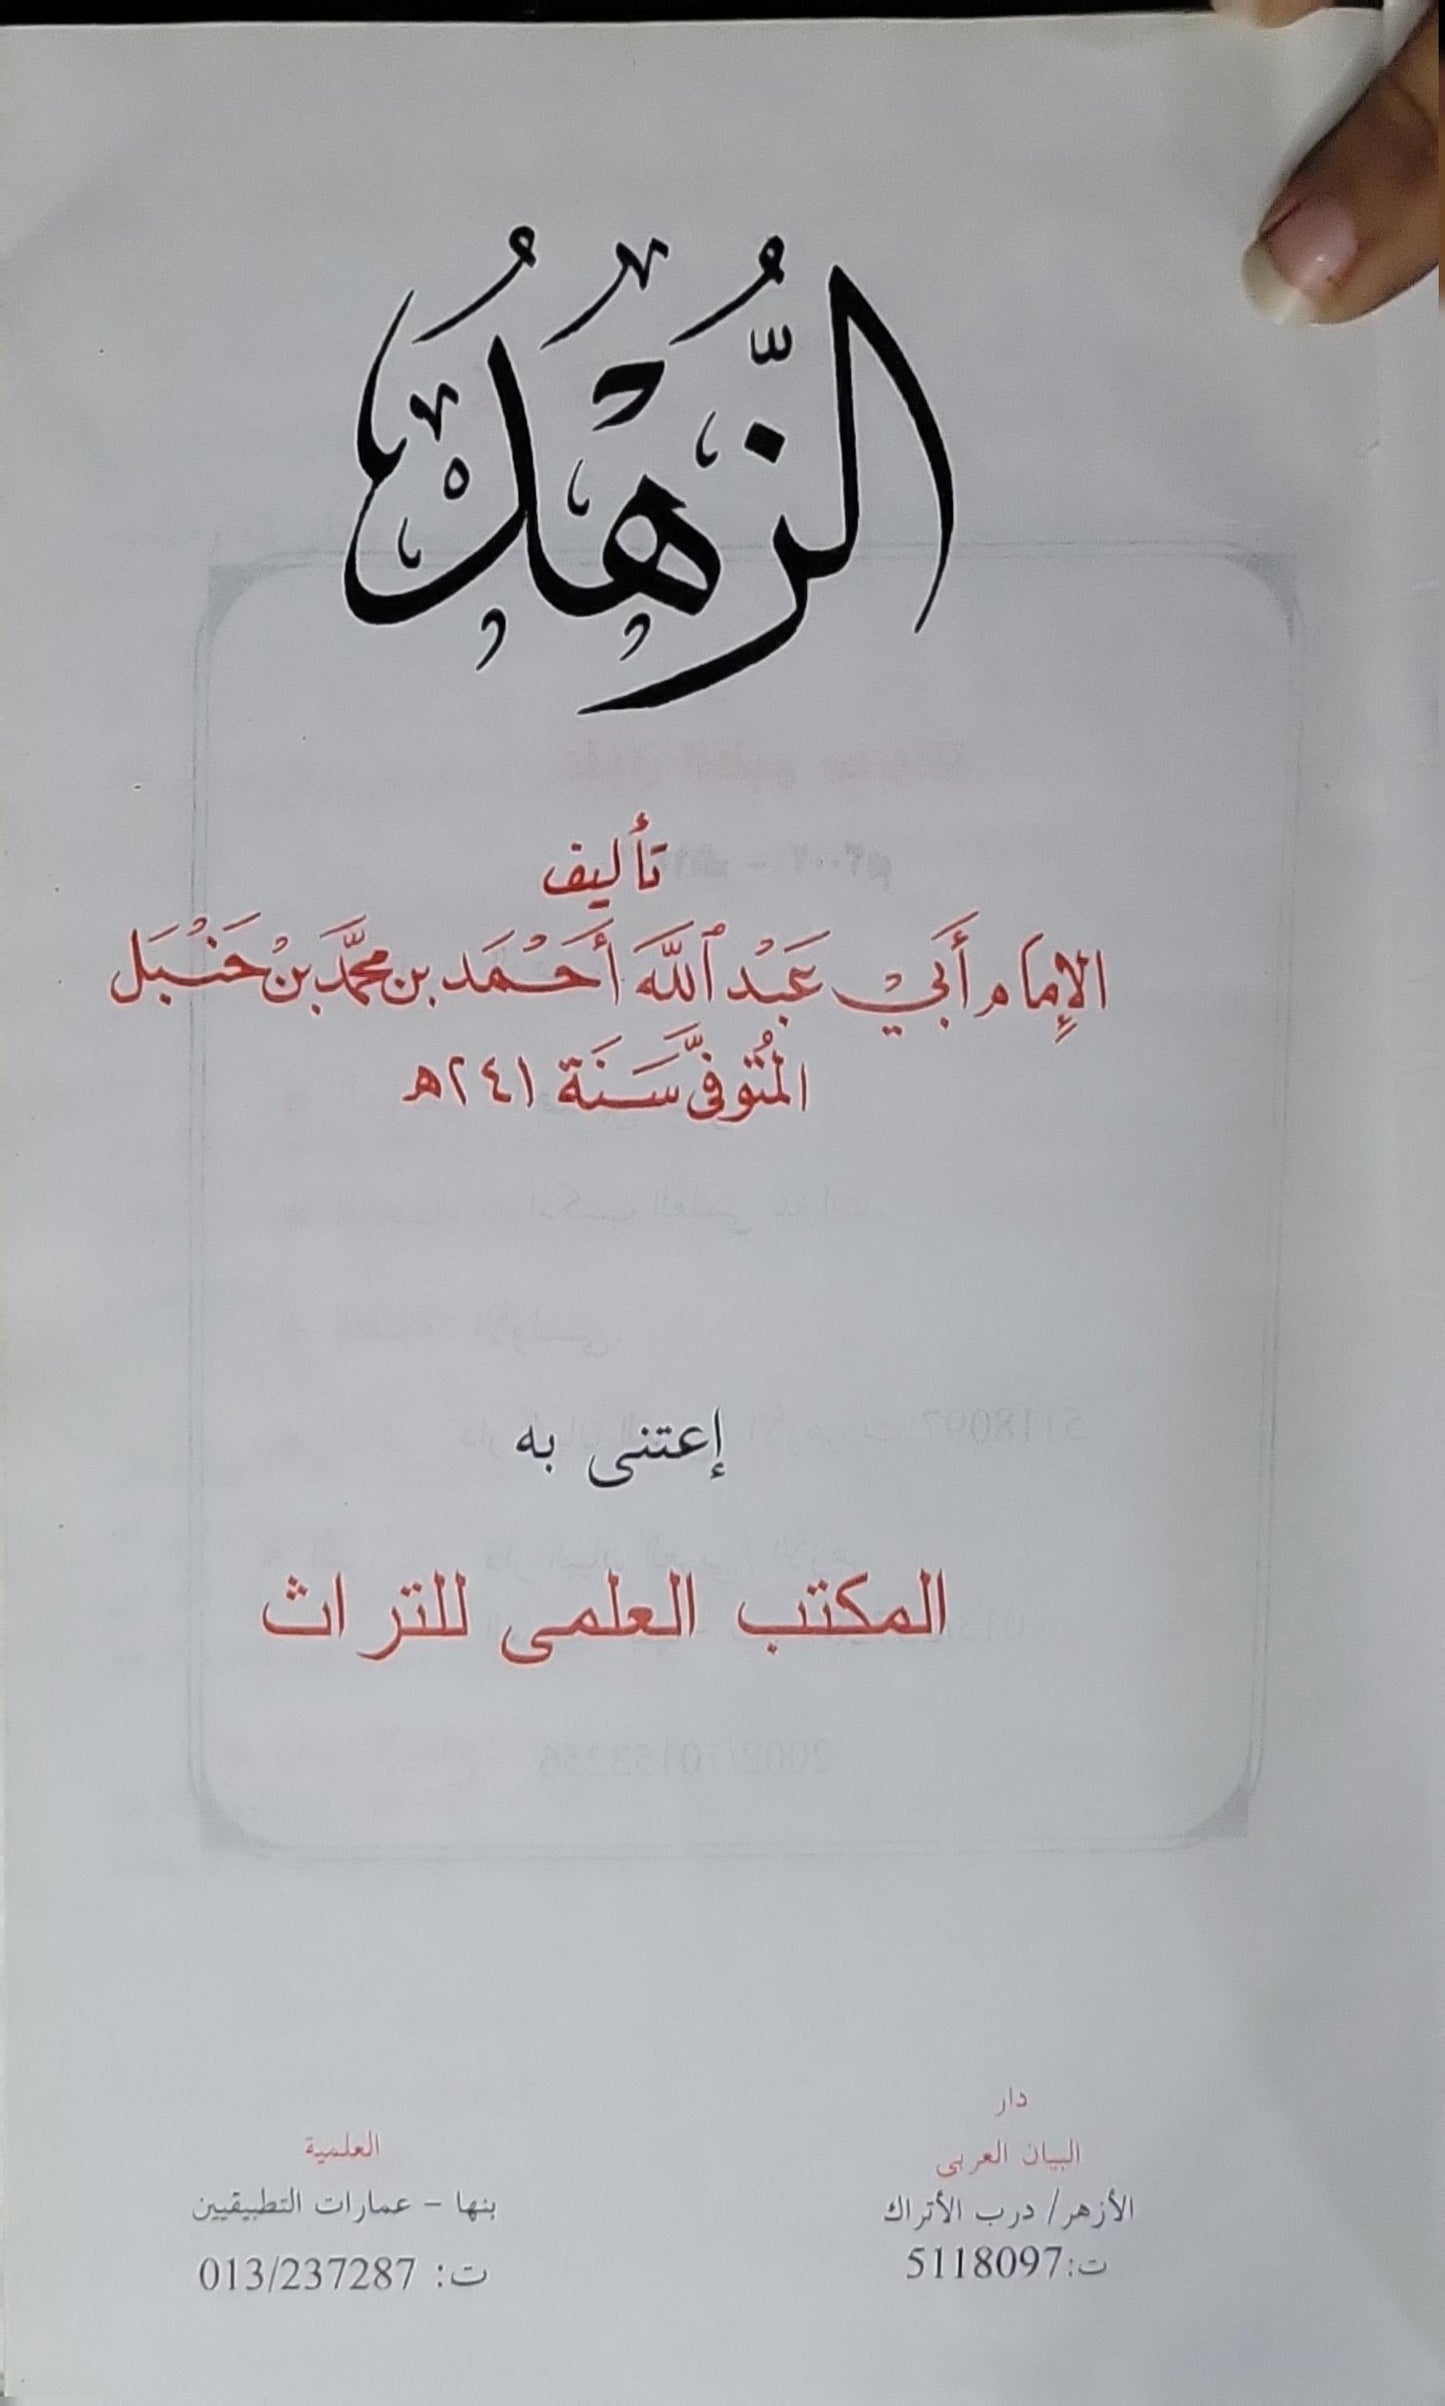 الزُّهْدُ
تأليف
الإِمام أَبيْ عَبْد ٱللَّه أَحْمَد بن محمَّد بنْ حَنْبَل
المُتُوفَّى سَنَة ٢٤١هـ
إعتنى به
المكتب العلمى للتراث
دار
البيان العربى
الأزهر/ درب الأتراك
ت:5118097
العلمية
بنها - عمارات التطبيقيين
ت: 013/237287